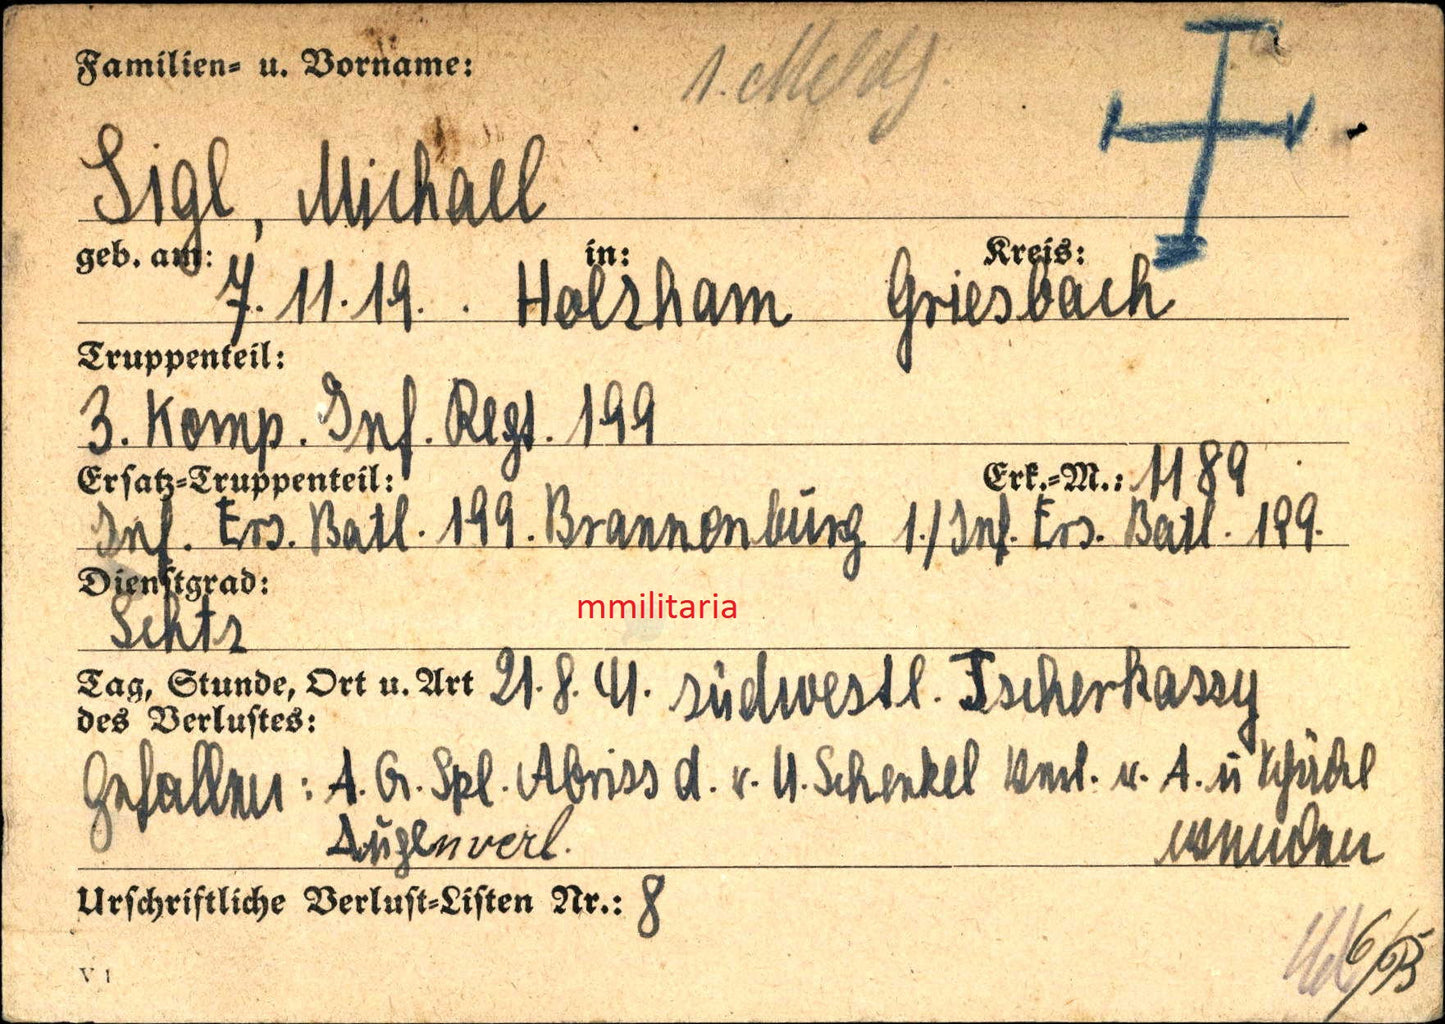 Familien- u. Vorname:
1. Meldg.
Sigl, Michael
geb. am: in: Kreis:
7. 11. 19. Holzham Griesbach
Truppenteil:
3. Komp. Inf. Regt. 199
Ersatz-Truppenteil: Erk.-M.: 1189
Inf. Ers. Batl. 199. Brannenburg 1./Inf. Ers. Batl. 199.
Dienstgrad:
Schtz
mmilitaria
Tag, Stunde, Ort u. Art 21. 8. 41. südwestl. Tscherkassy
des Verlustes:
Gefallen: A. G. Spl. Abriss d. r. U. Schenkel Verl. r. A. u Schädel
Augenverl. wunden
Urschriftliche Verlust-Listen Nr.: 8
V 1